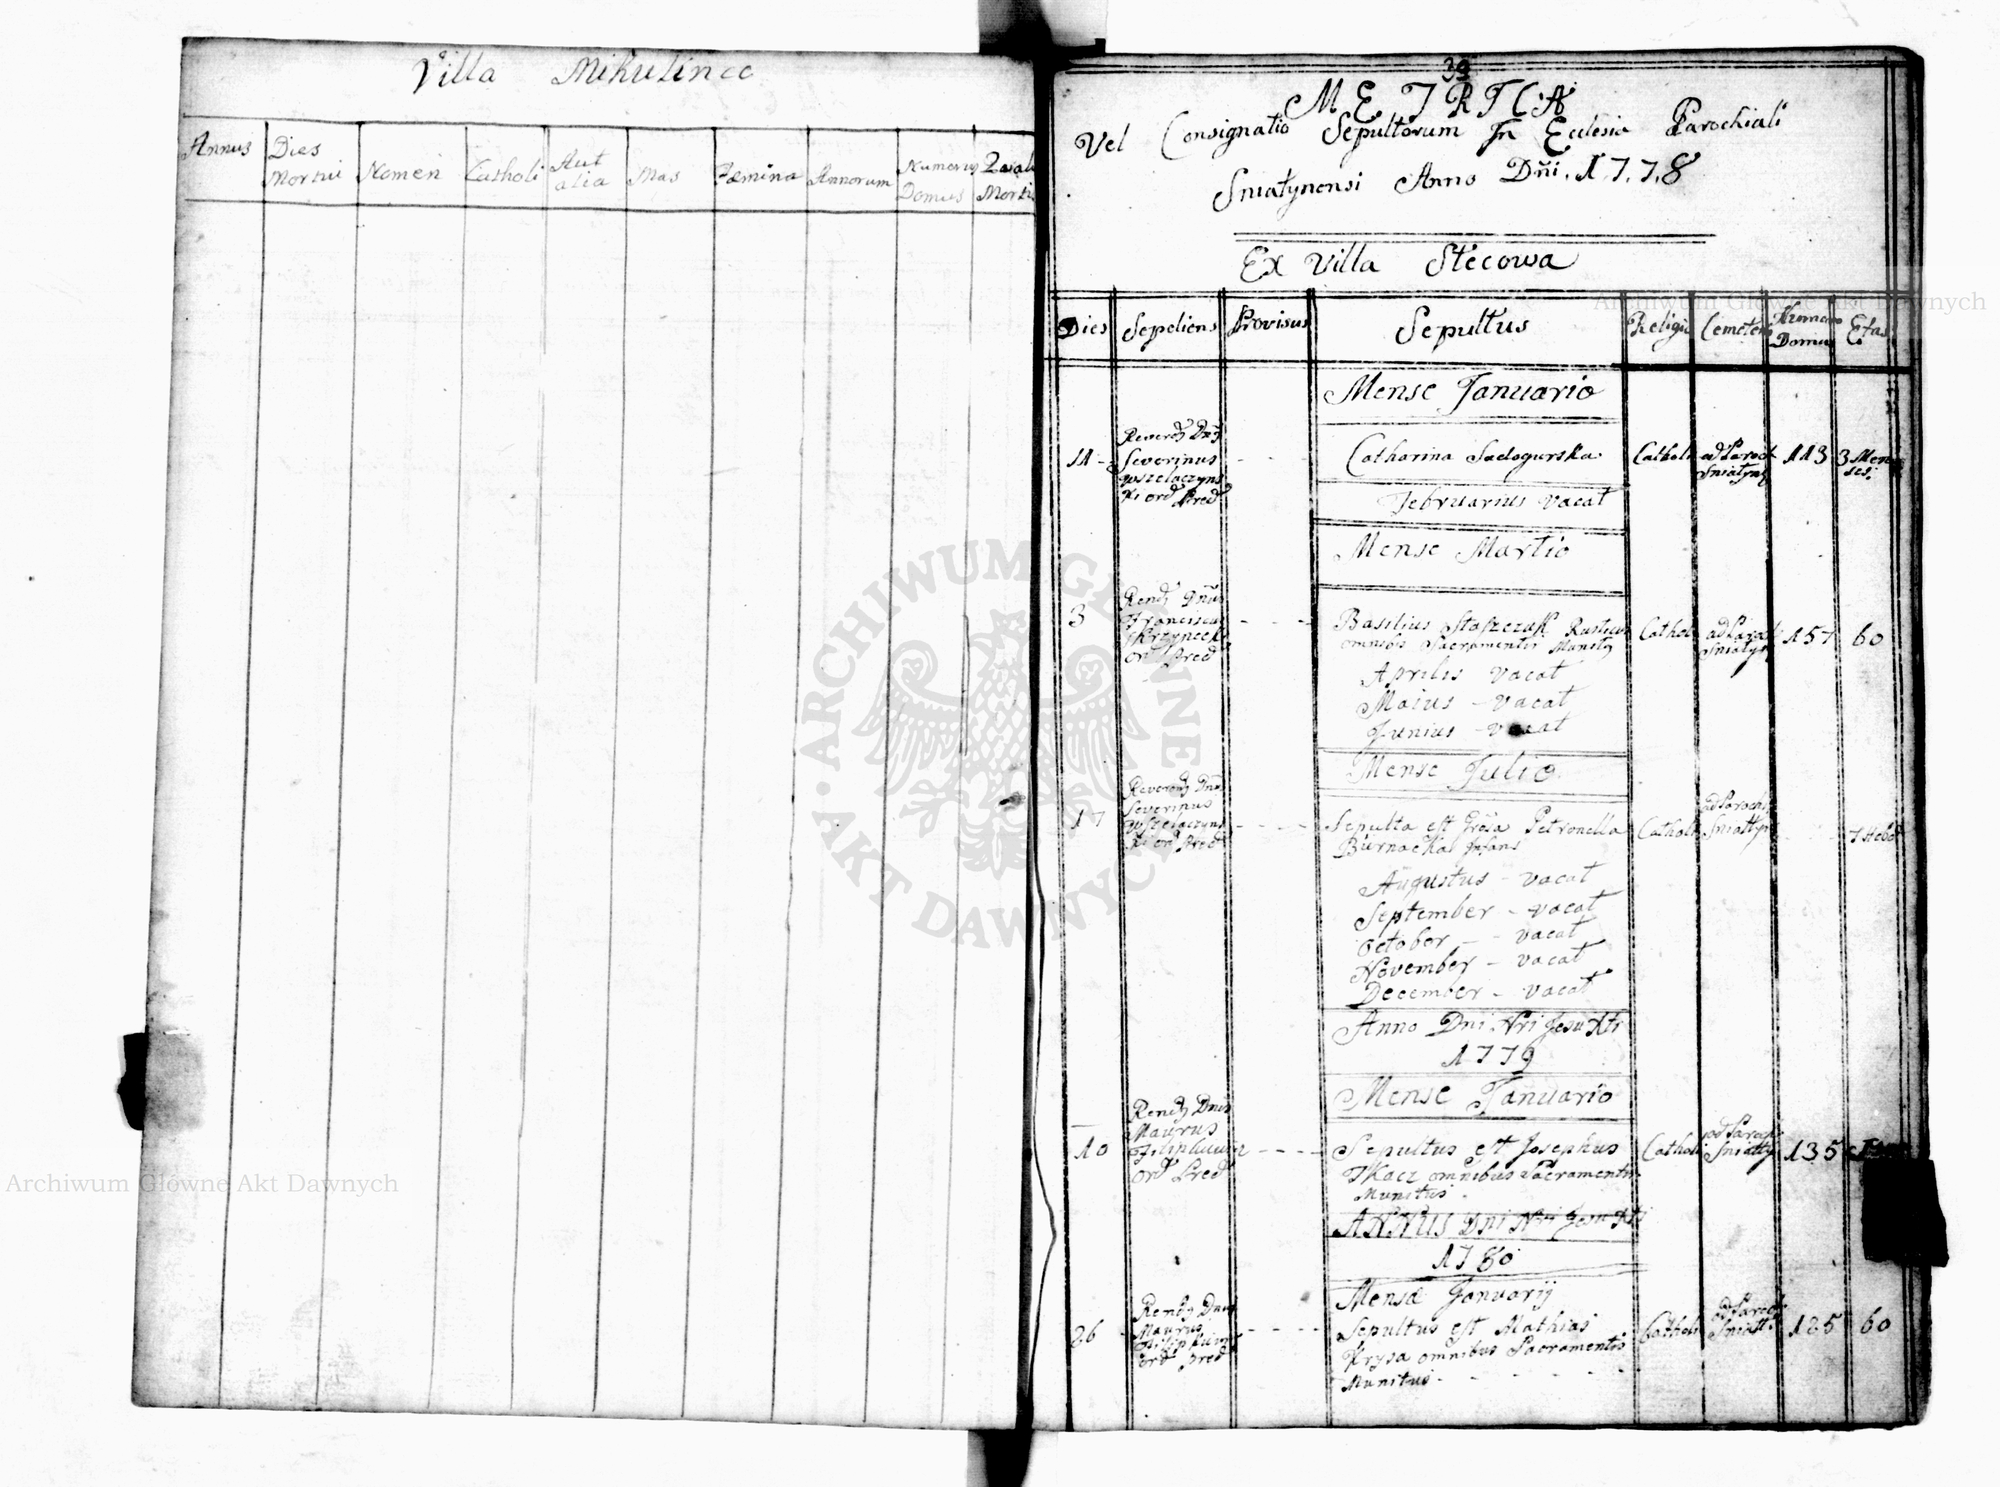 Villa Mikulince
Annus
Dies
Mortui
Nomen
Catholi
Aut
alia
Mas
Fæmina
Annorum
Numerus
Domus
Qual
Morti
39
METRICA
Vel Consignatio Sepultorum In Eclesia Parochiali
Sniatynensi Anno Dñi. 1778
Ex Villa Stecowa
Dies
Sepeliens
Provisus
Sepultus
Religio
Cemeteri
Numero
Domus
Etas
Mense Januario
11
Severinus
Catharina Sadogurska
Catholi
ad Paroch
Sniatyn
113
3 Men
ses
Februarius vacat
Mense Martio
3
Rend9 Dnus
Franciscus
ord Pred
Basilius Staszczuk Rusticus
omnibus Sacramentis Munitus
Cathol
ad Paroch
Sniatyn
157
60
Aprilis vacat
Maius - vacat
Junius - vacat
Mense Julio
17
Severinus
ord Pred
Sepulta est Petronella
Biernacka Infans
Catholi
ad Parochi
Sniattyn
7 Hebd
Augustus - vacat
September - vacat
October - vacat
November - vacat
December - vacat
Anno Dni Nri Jesu Xti
1779
Mense Januario
10
Rend9 Dnus
Maurus
ord Pred
Sepultus est Josephus
Tkacz omnibus Sacramentis
Munitus
Catholi
ad Paroch
Sniatty
135
ANNUS Dni Nri Jesu Xti
1780
Mense Januarij
26
Rend9 Dnus
Maurus
ord Pred
Sepultus est Mathias
Krysa omnibus Sacramentis
Munitus
Catholi
ad Paroch
Sniatt
125
60
ARCHIWUM GŁÓWNE AKT DAWNYCH
Archiwum Główne Akt Dawnych
Archiwum Główne Akt Dawnych